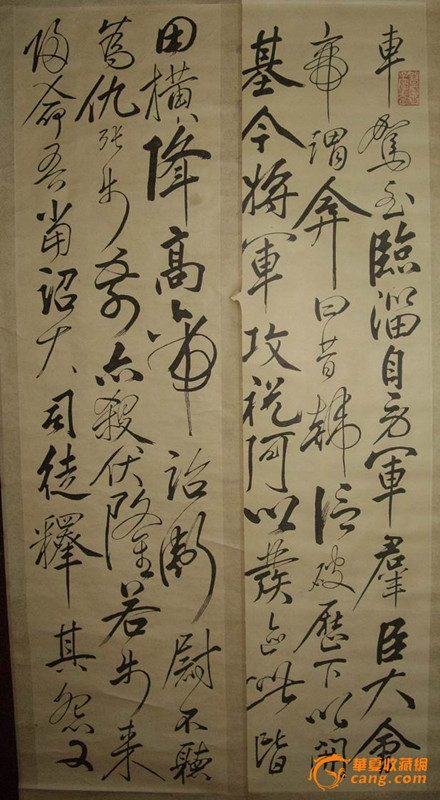 車駕至臨淄自勞軍羣臣大會
帝謂弇曰昔韓信破歷下以開
基今將軍攻祝阿以發迹此皆
田橫降高帝詔衛尉不聽
為仇張步前亦殺伏隆若步来
歸命吾當詔大司徒釋其怨又
華夏收藏網
cang.com